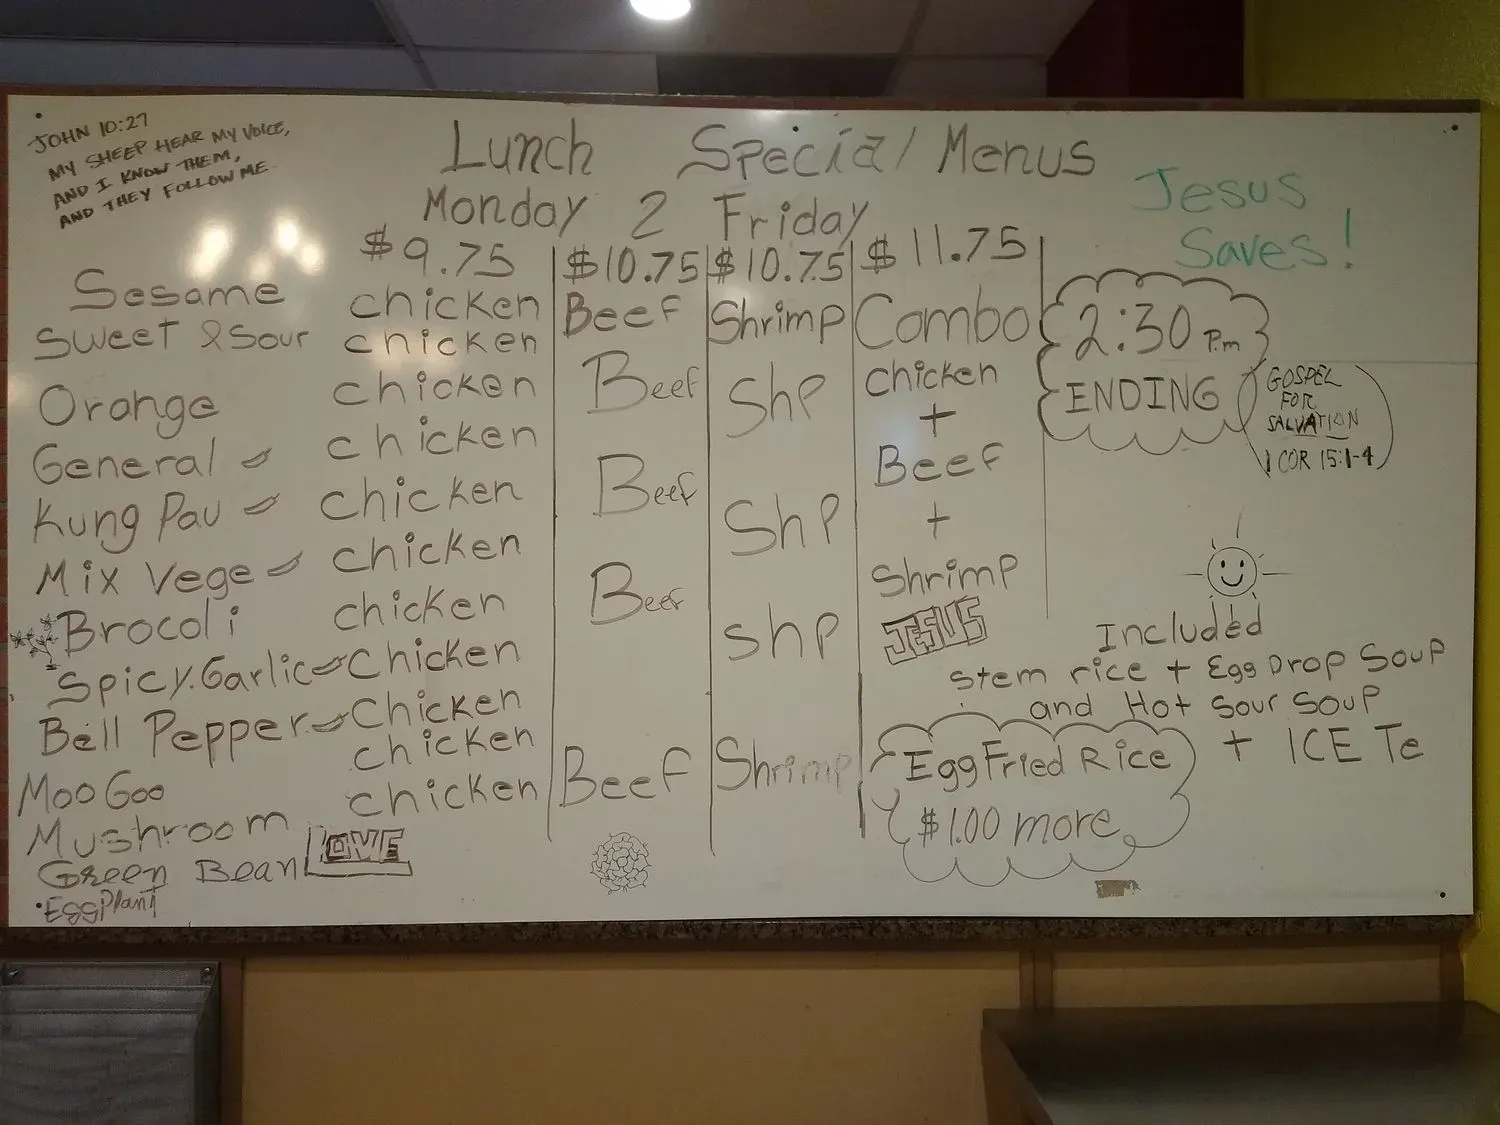 JOHN 10:27
MY SHEEP HEAR MY VOICE,
AND I KNOW THEM,
AND THEY FOLLOW ME
Lunch Special Menus
Monday 2 Friday
Jesus
Saves!
$9.75 $10.75 $10.75 $11.75
Sesame chicken Beef Shrimp Combo
Sweet & Sour chicken
Orange chicken Beef Shp chicken
+
General chicken Beef
Kung Pau chicken Beef Shp +
Mix Vege chicken Shrimp
Brocoli chicken Beef Shp JESUS
Spicy.Garlic Chicken
Bell Pepper Chicken
Moo Goo chicken
Mushroom chicken Beef Shrimp
Green Bean LOVE
EggPlant
2:30 P.m
ENDING
GOSPEL
FOR
SALVATION
1 COR 15:1-4
Included
Stem rice + Egg Drop Soup
and Hot Sour Soup
+ ICE Te
Egg Fried Rice
$1.00 more